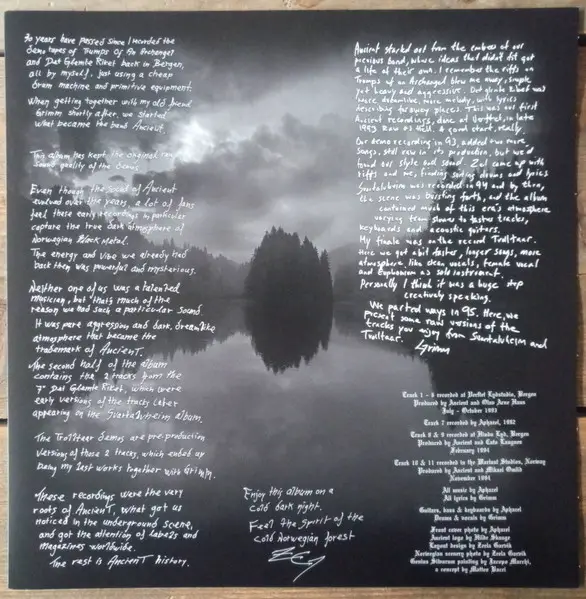 30 years have passed since I recorded the
demo tapes of Trumps Of An Archangel
and Det Glemte Riket back in Bergen,
all by myself. Just using a cheap
drum machine and primitive equipment.
When getting together with my old friend
Grimm shortly after, we started
what became the band Ancient.
This album has kept the original raw
sound quality of the demos.
Even though the sound of Ancient
evolved over the years, a lot of fans
feel these early recordings in particular
capture the true dark atmosphere of
Norwegian Black Metal.
The energy and vibe we already had
back then was powerful and mysterious.
Neither one of us was a talented
musician, but that's much of the
reason we had such a particular sound
It was pure aggression and dark, dreamlike
atmosphere that became the
trademark of Ancient.
The second half of the album
contains the 2 tracks from the
7" Det Glemte Riket, which were
early versions of the tracks later
appearing on the Svartalvheim album.
The Trolltaar demos are pre-production
versions of these 2 tracks, which ended up
being my last works together with Grimm.
These recordings were the very
roots of Ancient, what got us
noticed in the underground scene,
and got the attention of labels and
magazines worldwide.
The rest is Ancient history.
Enjoy this album on a
cold dark night.
Feel the Spirit of the
cold Norwegian forest
Ancient started out from the embers of our
previous band, where ideas that didn't fit got
a life of their own. I remember the riffs on
Trumps of an Archangel blew me away, simple
yet heavy and aggressive. Det glemte riket was
more dreamlike, more melody, with lyrics
describing far away places. This was our first
Ancient recordings, done at in late
1993 Raw as Hell. A good start, really.
Our demo recording in 93, added two more
songs, still raw in its production, but we'd
found our style and sound. Zel came up with
riffs and me, finding suiting drums and lyrics
Svartalvheim was recorded in 94 and by then,
the scene was bursting forth, and the album
contained much of this era's atmosphere
varying from slower to faster tracks,
keyboards and acoustic guitars.
My finale was on the record Trolltaar.
Here we got a bit faster, longer songs, more
atmosphere like clean vocals, female vocal
and Euphonium as solo instrument.
Personally I think it was a huge step
creatively speaking.
We parted ways in 95. Here, we
present some raw versions of the
tracks you enjoy from Svartalvheim and
Trolltaar.
Grimm
Track 1 - 6 recorded at Perfekt Lydstudio, Bergen
Produced by Ancient and Olav Arne Haus
July - October 1993
Track 7 recorded by Aphazel, 1992
Track 8 & 9 recorded at Studio Lyd, Bergen
Produced by Ancient and Cato Langnes
February 1994
Track 10 & 11 recorded in the Warlust Studios, Norway
Produced by Ancient and Mikael Oudild
November 1994
All music by Aphazel
All lyrics by Grimm
Guitars, bass & keyboards by Aphazel
Drums & vocals by Grimm
Front cover photo by Aphazel
Ancient logo by Hilde Skauge
Layout design by Leela Garvik
Norwegian scenery photo by Leela Garvik
Genius Silvarum painting by Jacopo Marchi,
a concept by Matteo Bacci